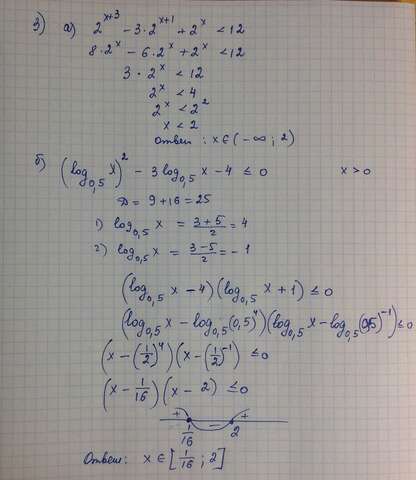 3) а) 2^(x+3) − 3·2^(x+1) + 2^x < 12
8·2^x − 6·2^x + 2^x < 12
3·2^x < 12
2^x < 4
2^x < 2^2
x < 2
Ответ: x ∈ (−∞; 2)
б) (log_0,5 x)^2 − 3 log_0,5 x − 4 ≤ 0 x > 0
D = 9 + 16 = 25
1) log_0,5 x = (3+5)/2 = 4
2) log_0,5 x = (3−5)/2 = −1
(log_0,5 x − 4)(log_0,5 x + 1) ≤ 0
(log_0,5 x − log_0,5 (0,5)^4)(log_0,5 x − log_0,5 (0,5)^−1) ≤ 0
(x − (1/2)^4)(x − (1/2)^−1) ≤ 0
(x − 1/16)(x − 2) ≤ 0
+ − +
1/16 2
Ответ: x ∈ [1/16; 2]